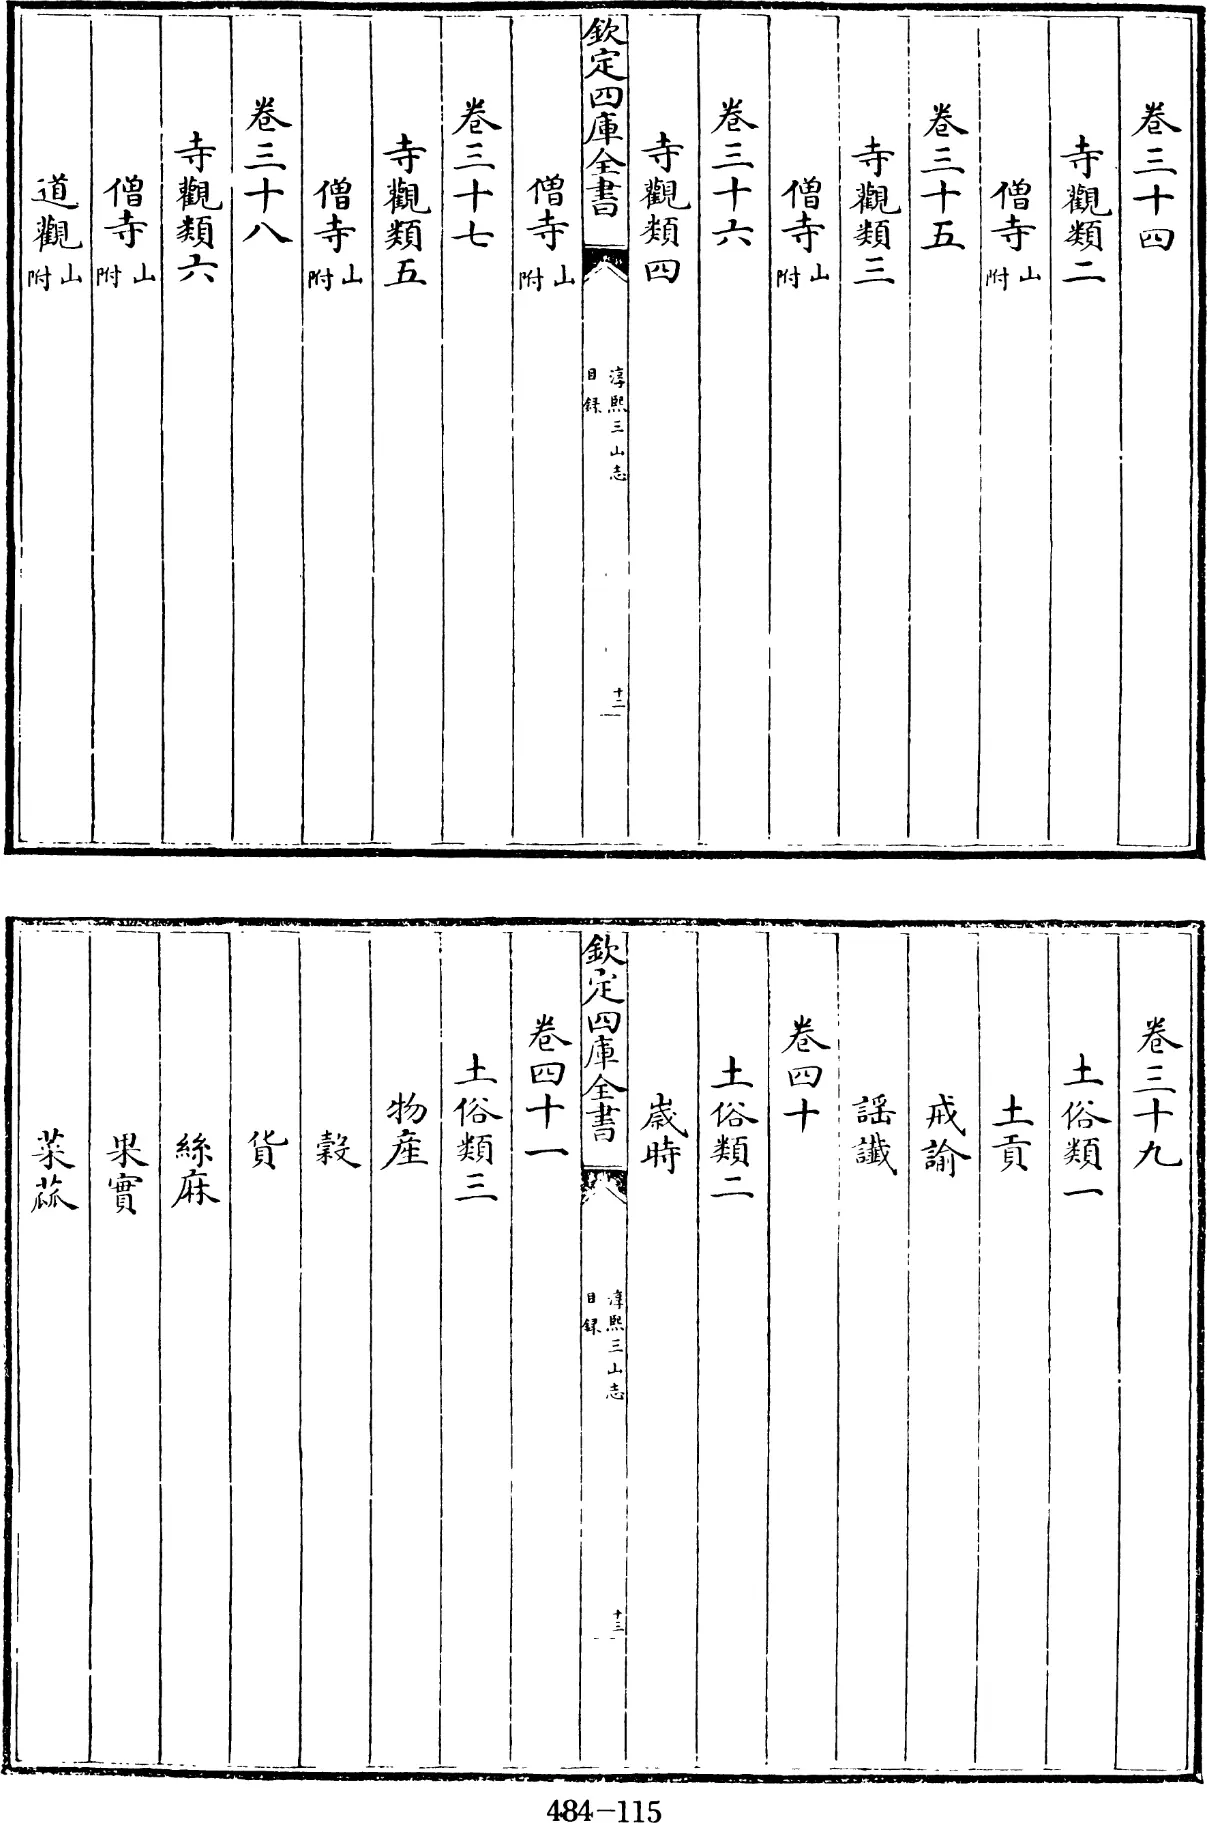 卷三十四
寺觀類二
僧寺山附
卷三十五
寺觀類三
僧寺山附
卷三十六
寺觀類四
欽定四庫全書
淳熙三山志
目録
十二
僧寺山附
卷三十七
寺觀類五
僧寺山附
卷三十八
寺觀類六
僧寺山附
道觀山附
卷三十九
土俗類一
土貢
戒諭
謡讖
卷四十
土俗類二
歲時
欽定四庫全書
淳熙三山志
目録
十三
卷四十一
土俗類三
物產
穀
貨
絲麻
果實
菜蓏
484-115